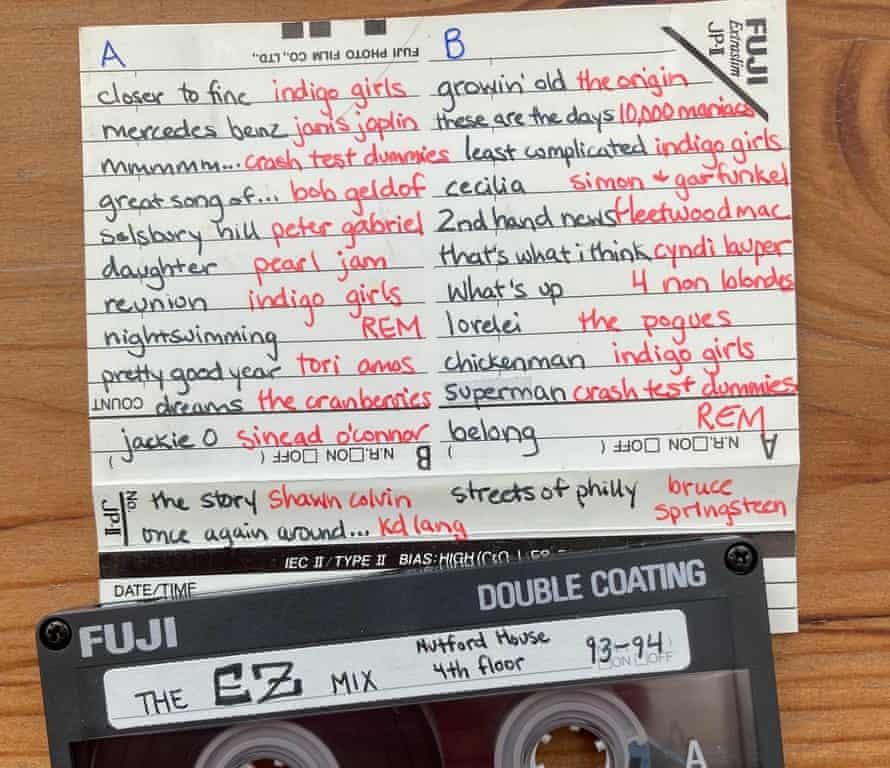 A
FUJI PHOTO FILM CO., LTD.
closer to fine indigo girls
mercedes benz janis joplin
mmmmm... crash test dummies
great song of... bob geldof
solsbury hill peter gabriel
daughter pearl jam
reunion indigo girls
nightswimming REM
pretty good year tori amos
COUNT
dreams the cranberries
jackie O sinead o'connor
B N.R.□ON □OFF ( )
B
FUJI
Extraslim
JP-II
growin' old the origin
these are the days 10,000 maniacs
least complicated indigo girls
cecilia simon + garfunkel
2nd hand news fleetwood mac
that's what i think cyndi lauper
What's up 4 non blondes
lorelei the pogues
chickenman indigo girls
superman crash test dummies
belong REM
A N.R.□ON □OFF ( )
No.
JP-II
the story shawn colvin
once again around... kd lang
streets of philly bruce
springsteen
IEC II / TYPE II BIAS: HIGH
DATE/TIME
DOUBLE COATING
FUJI
THE EZ MIX
Nutford House
4th floor
93-94
□ON □OFF
A